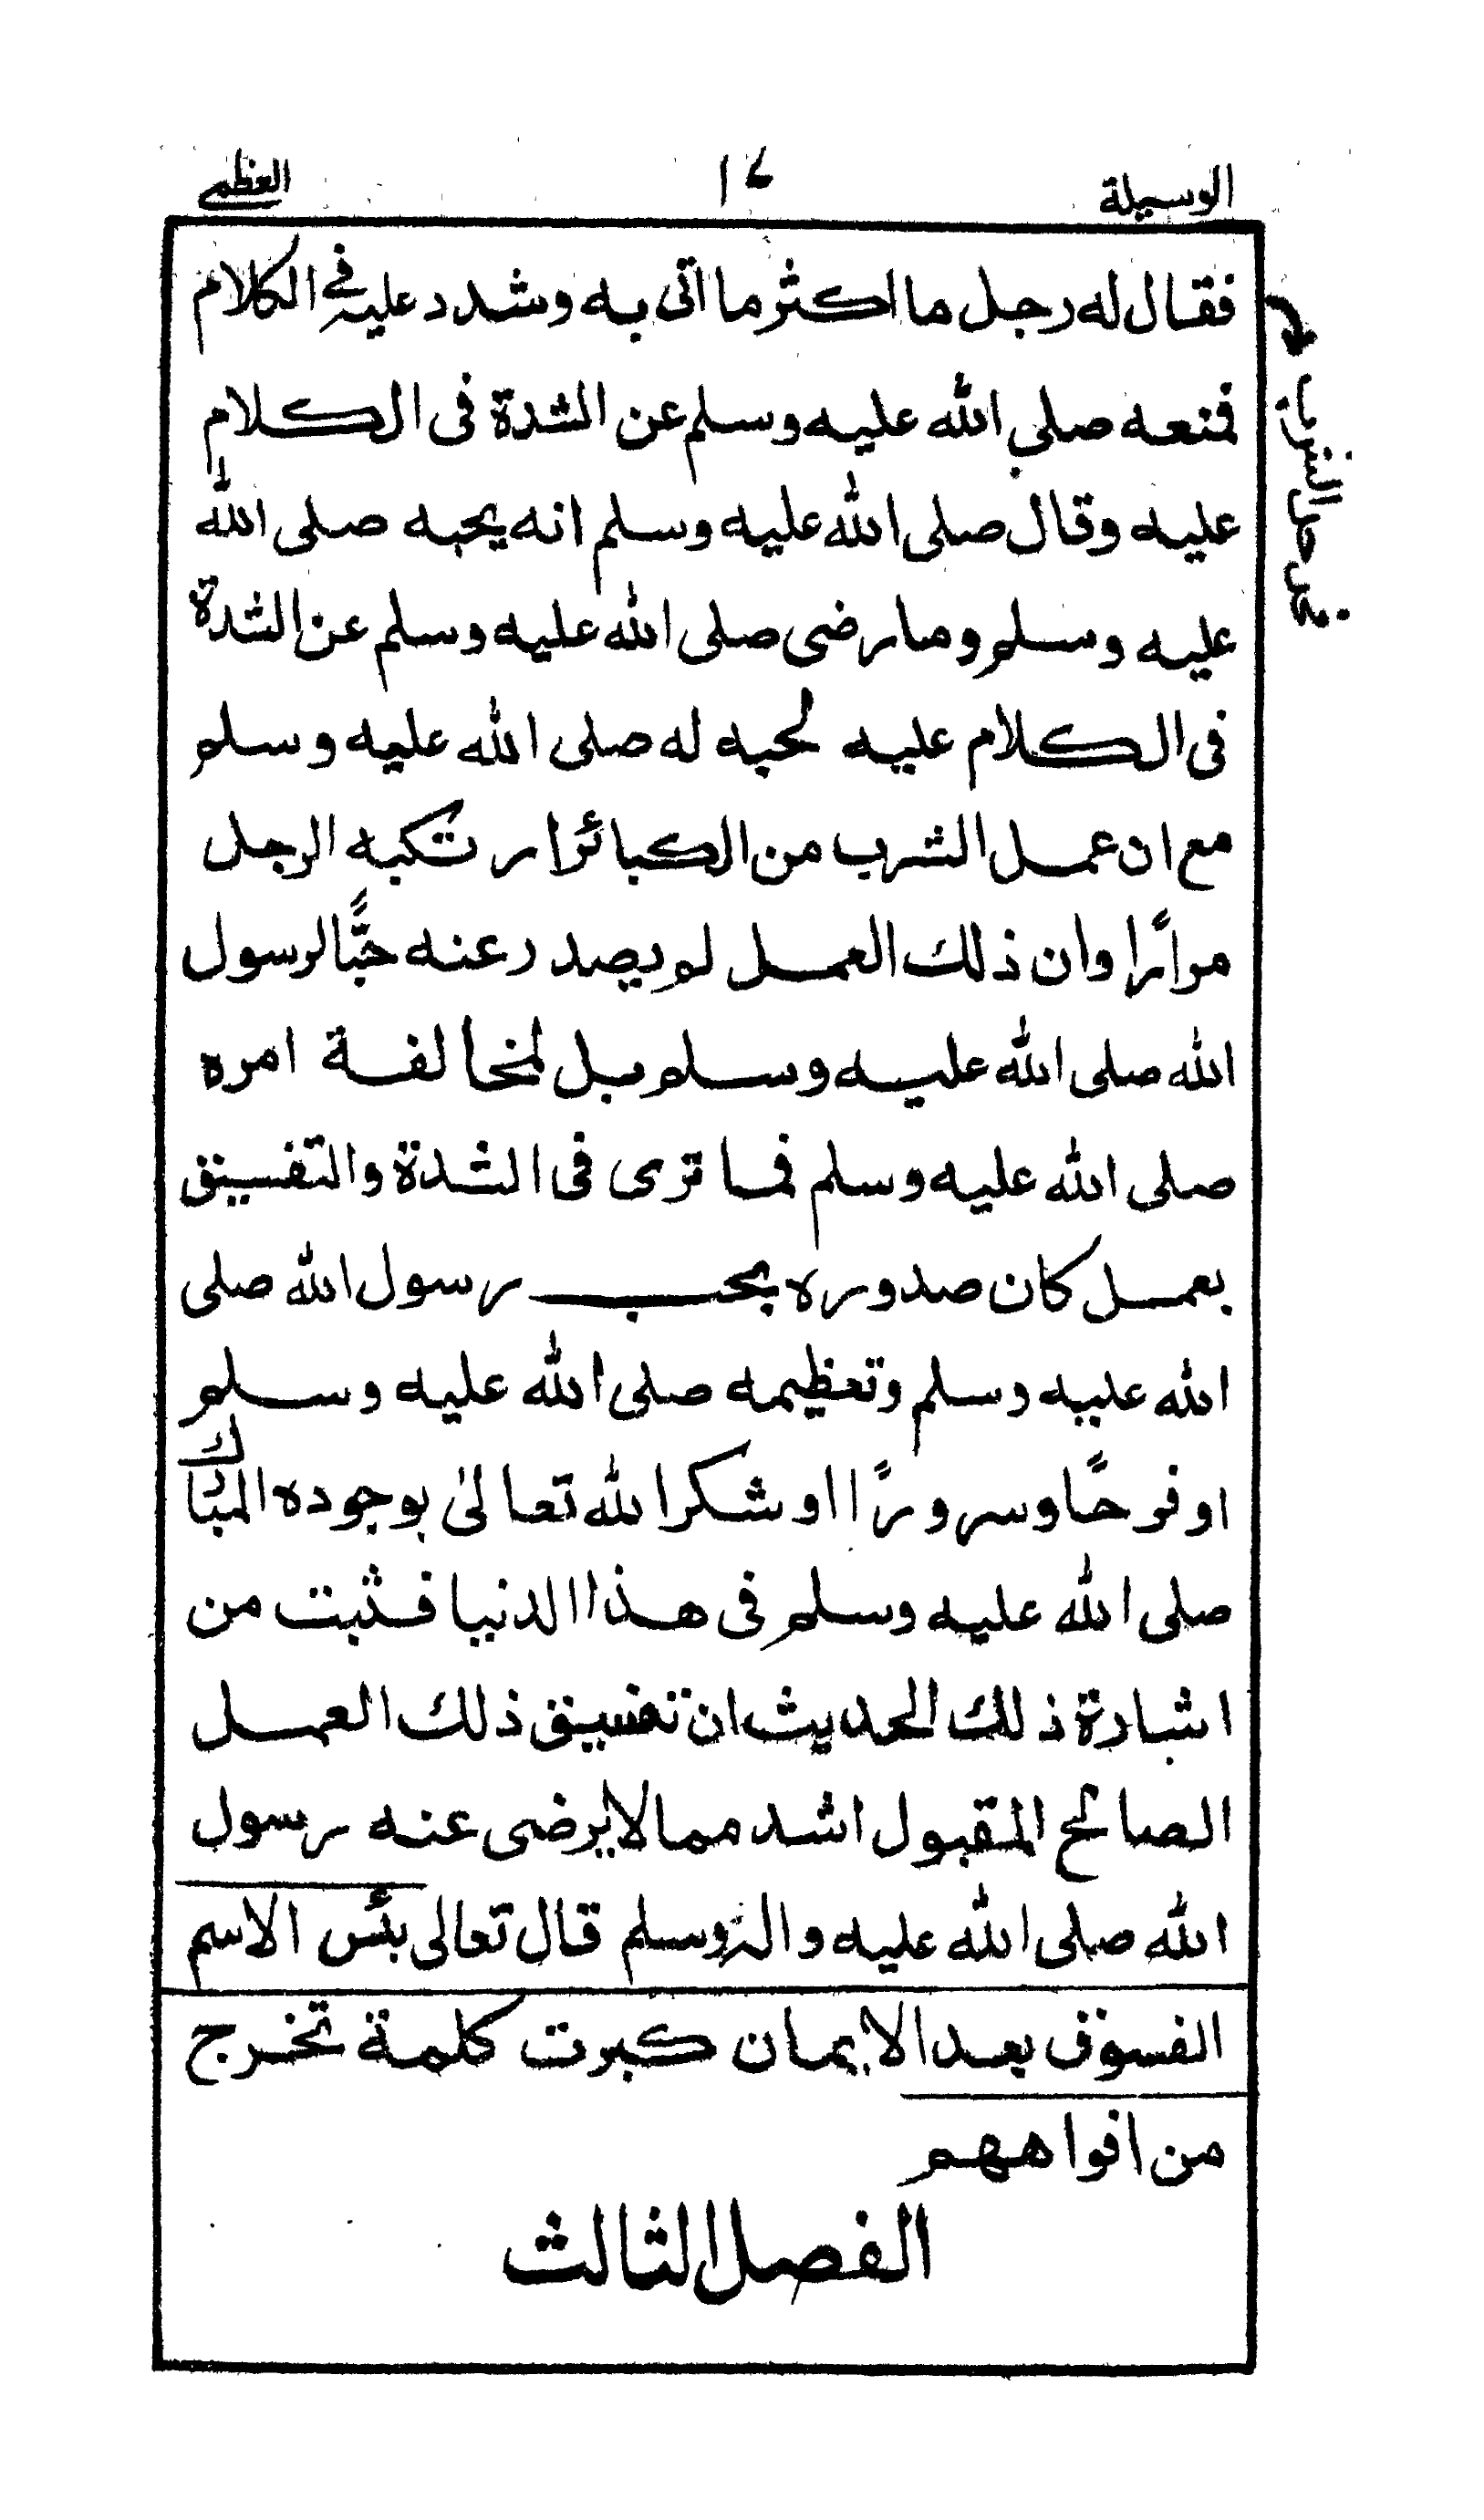 الوسيلة ١٧ العظمى
فقال له رجل ما اكثر ما اتى به وشدد عليه فى الكلام
فمنعه صلى الله عليه وسلم عن الشدة فى الكلام
عليه وقال صلى الله عليه وسلم انه يحبه صلى الله
عليه وسلم وما رضى صلى الله عليه وسلم عن الشدة
فى الكلام عليه لحبه له صلى الله عليه وسلم
مع ان عمل الشرب من الكبائر ارتكبه الرجل
مرارًا وان ذلك العمل لم يصدر عنه حبًّا لرسول
الله صلى الله عليه وسلم بل لمخالفة امره
صلى الله عليه وسلم فما ترى فى الشدة والتفسيق
بعمل كان صدوره بحب رسول الله صلى
الله عليه وسلم وتعظيمه صلى الله عليه وسلم
او فرحًا وسرورًا او شكرا لله تعالىٰ بوجوده المبارك
صلى الله عليه وسلم فى هذا الدنيا فثبت من
اشارة ذلك الحديث ان تفسيق ذلك العمل
الصالح المقبول اشد مما لا يرضى عنه رسول
الله صلى الله عليه واله وسلم قال تعالى بئس الاسم
الفسوق بعد الايمان كبرت كلمة تخرج
من افواههم
الفصل الثالث